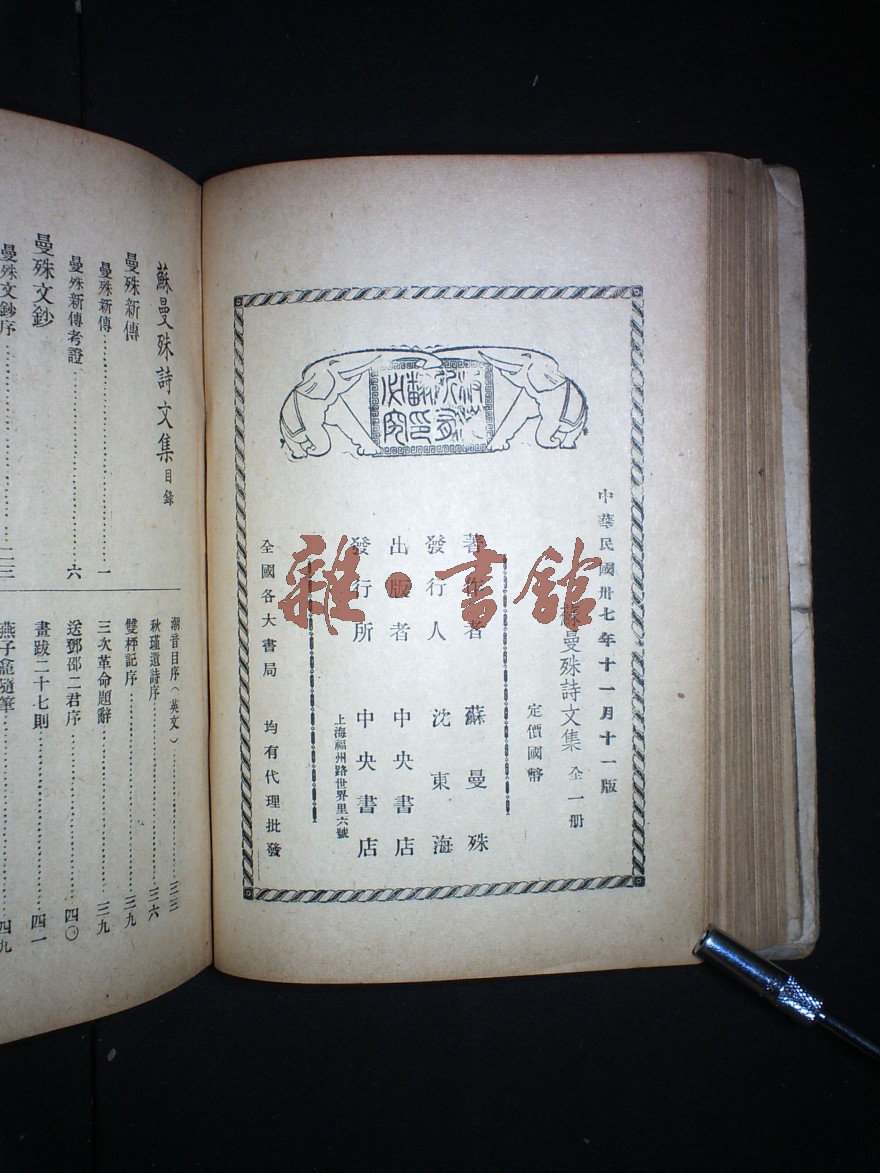 中華民國卅七年十一月十一版
蘇曼殊詩文集 全一册
定價國幣
著作者 蘇曼殊
發行人 沈東海
出版者 中央書店
發行所 中央書店
上海福州路世界里六號
全國各大書局 均有代理批發
版權所有
翻印必究
雜·書館
蘇曼殊詩文集目錄
曼殊新傳
曼殊新傳……一
曼殊新傳考證……六
曼殊文鈔
曼殊文鈔序……二三
潮音目序(英文)……三三
秋瑾遺詩序……三六
雙枰記序……三九
三次革命題辭……三九
送鄧邵二君序……四〇
畫跋二十七則……四一
燕子龕隨筆……四九